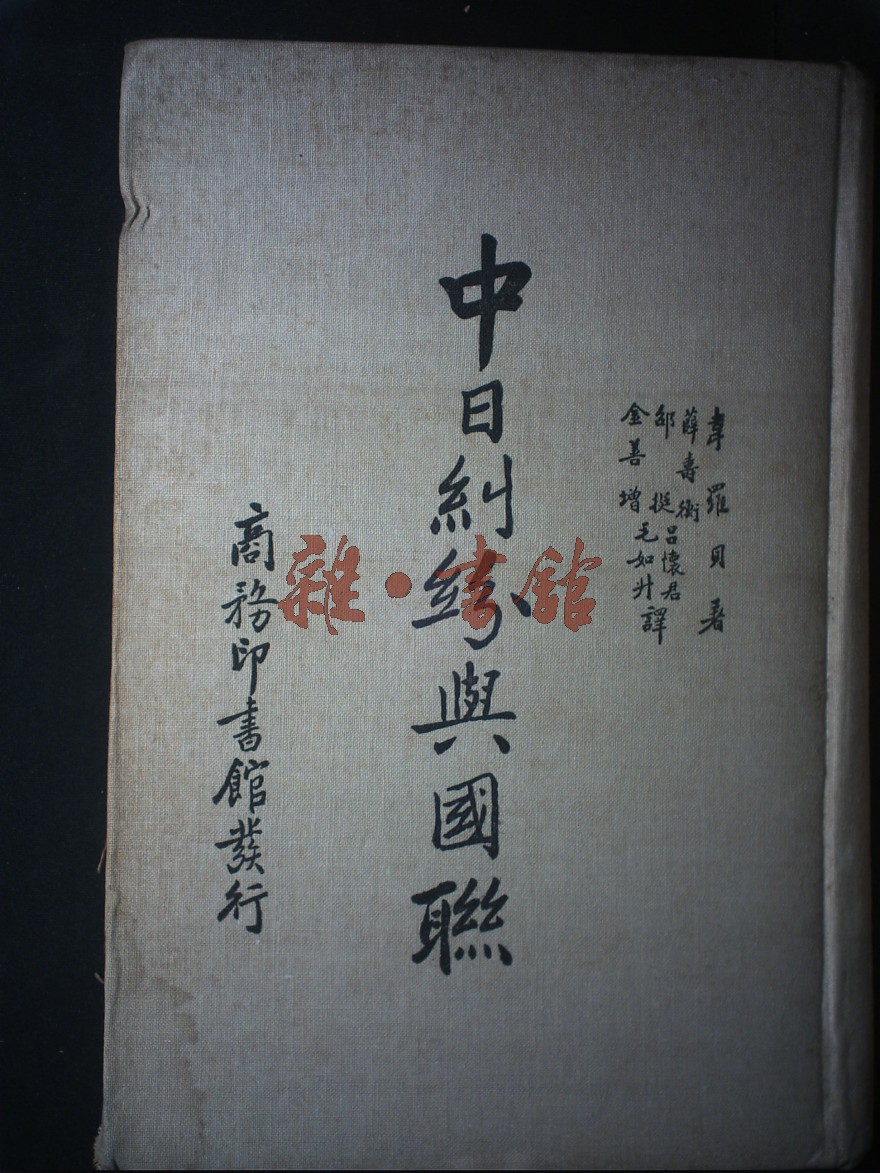 韋羅貝著
薛壽衡 呂懷君
邵挺
金善增 毛如升 譯
中日糾紛與國聯
商務印書館發行
雜·書館